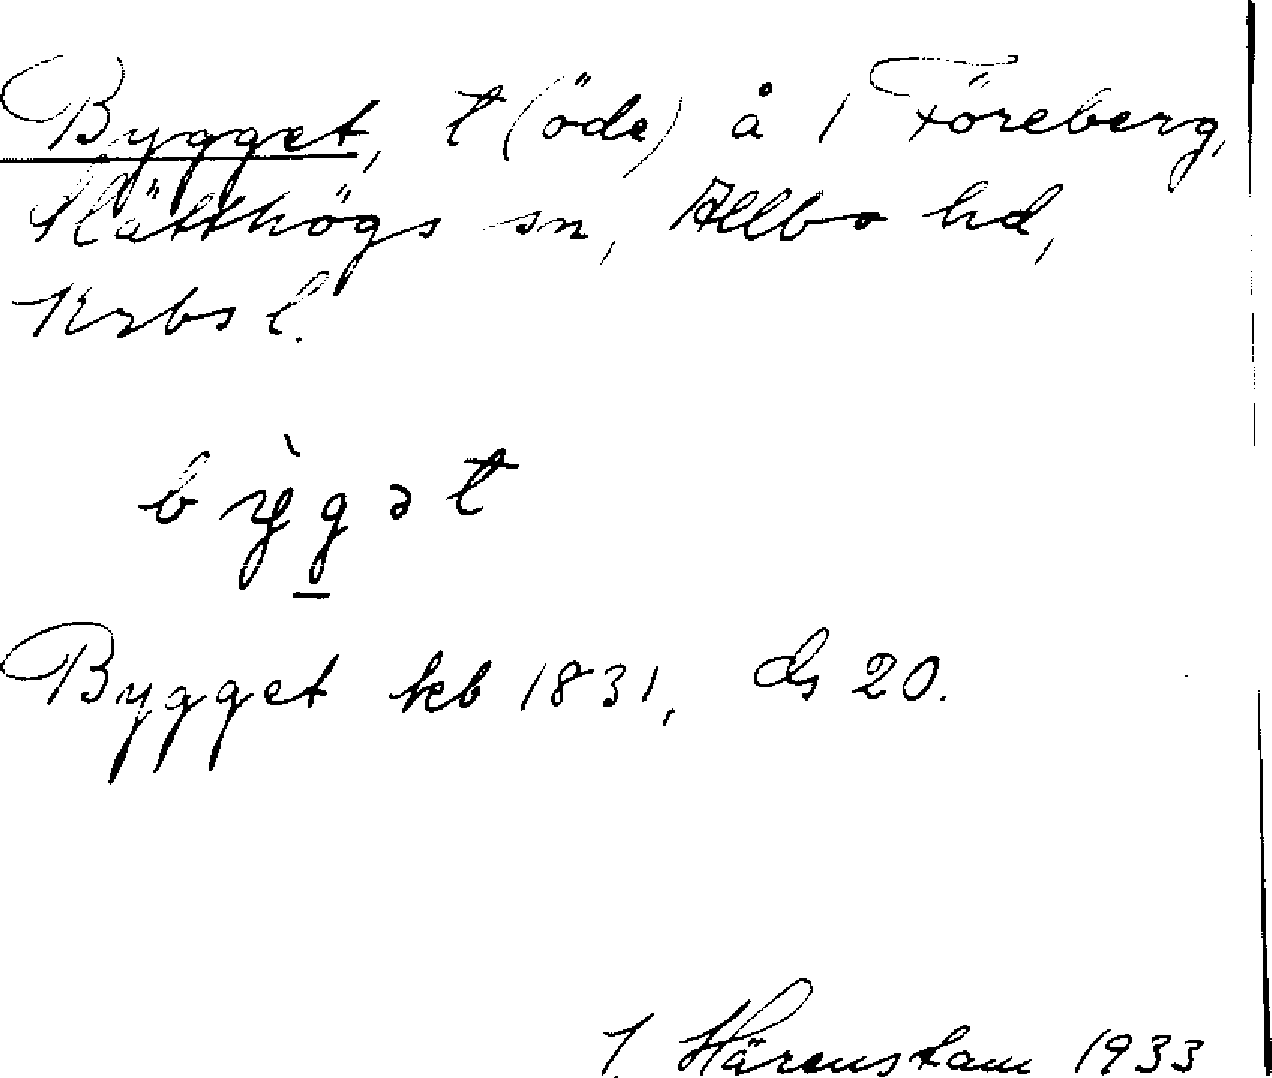 Bygget, t (öde) å 1 Föreberg,
Slätthögs sn, Allbo hd,
Krbs l.
bỳgət
Bygget kb 1831, ds 20.
J. Härenstam 1933